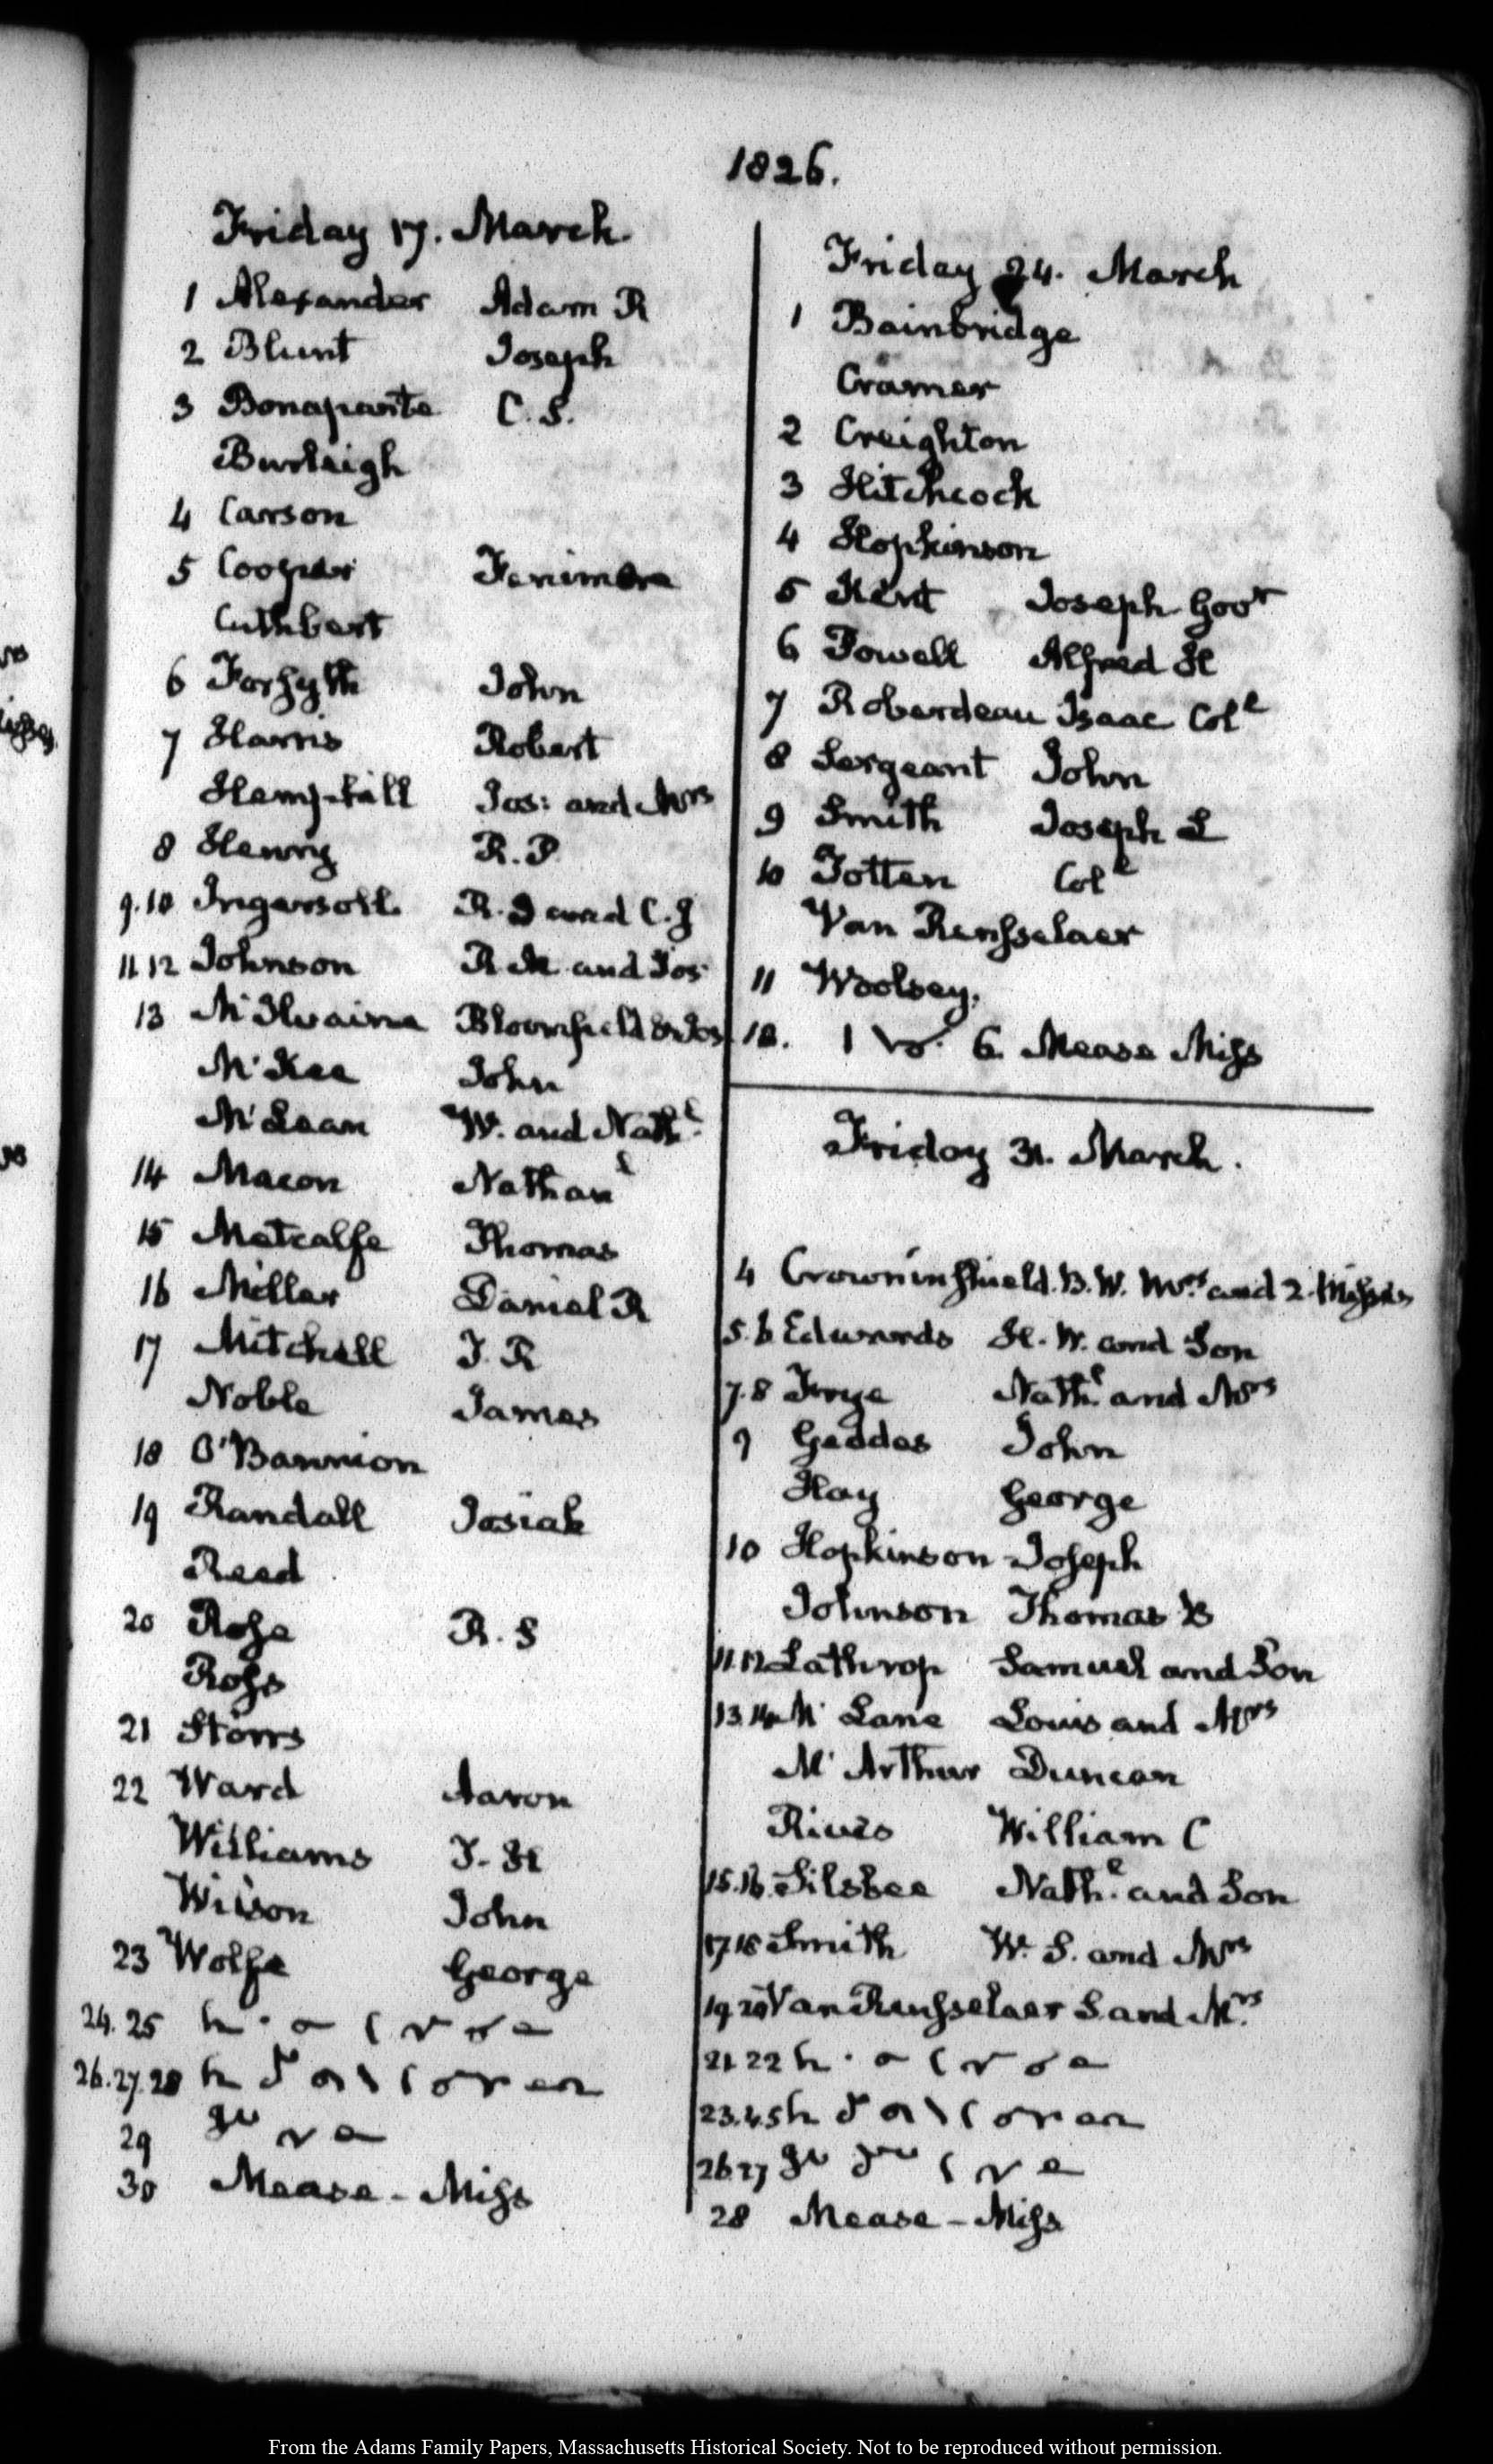 1826.
Friday 17. March.
1 Alexander Adam R
2 Blunt Joseph
3 Bonaparte C. S.
Burleigh
4 Carson
5 Cooper Fenimore
Cuthbert
6 Forsyth John
7 Harris Robert
Hemphill Jos: and Mrs
8 Henry R. P.
9.10 Ingersoll R. I and C. J
11 12 Johnson R M and Jos
13 McIlvaine Bloomfield & Jos
McKee John
McLean W. and Nathl.
14 Macon Nathanl
15 Metcalfe Thomas
16 Miller Daniel R
17 Mitchell T. R
Noble James
18 O'Bannion
19 Randall Josiah
Reed
20 Rose R. S
Ross
21 Storrs
22 Ward Aaron
Williams T. H
Wilson John
23 Wolfe George
24. 25
26. 27. 28
29
30 Mease - Miss
Friday 24. March
1 Bainbridge
Cramer
2 Creighton
3 Hitchcock
4 Hopkinson
5 Kent Joseph Govr
6 Powell Alfred H
7 Roberdeau Isaac Coll
8 Sergeant John
9 Smith Joseph L
10 Totten Coll
Van Rensselaer
11 Woolsey.
6. Mease Miss
Friday 31. March.
4 Crowninshield. B. W. Mrs. and 2 Misses
5. 6 Edwards H. W. and Son
7. 8 Frye Nathl. and Mrs
9 Geddes John
Hay George
10 Hopkinson Joseph
Johnson Thomas B
11. 12 Lathrop Samuel and Son
13. 14 Mc Lane Louis and Mrs
Mc Arthur Duncan
Rives William C
15. 16. Silsbee Nathl. and Son
17 18 Smith W. S. and Mrs
19. 20 Van Rensselaer S. and Mrs.
21. 22
23. 4. 5
26 27
28 Mease - Miss
From the Adams Family Papers, Massachusetts Historical Society. Not to be reproduced without permission.